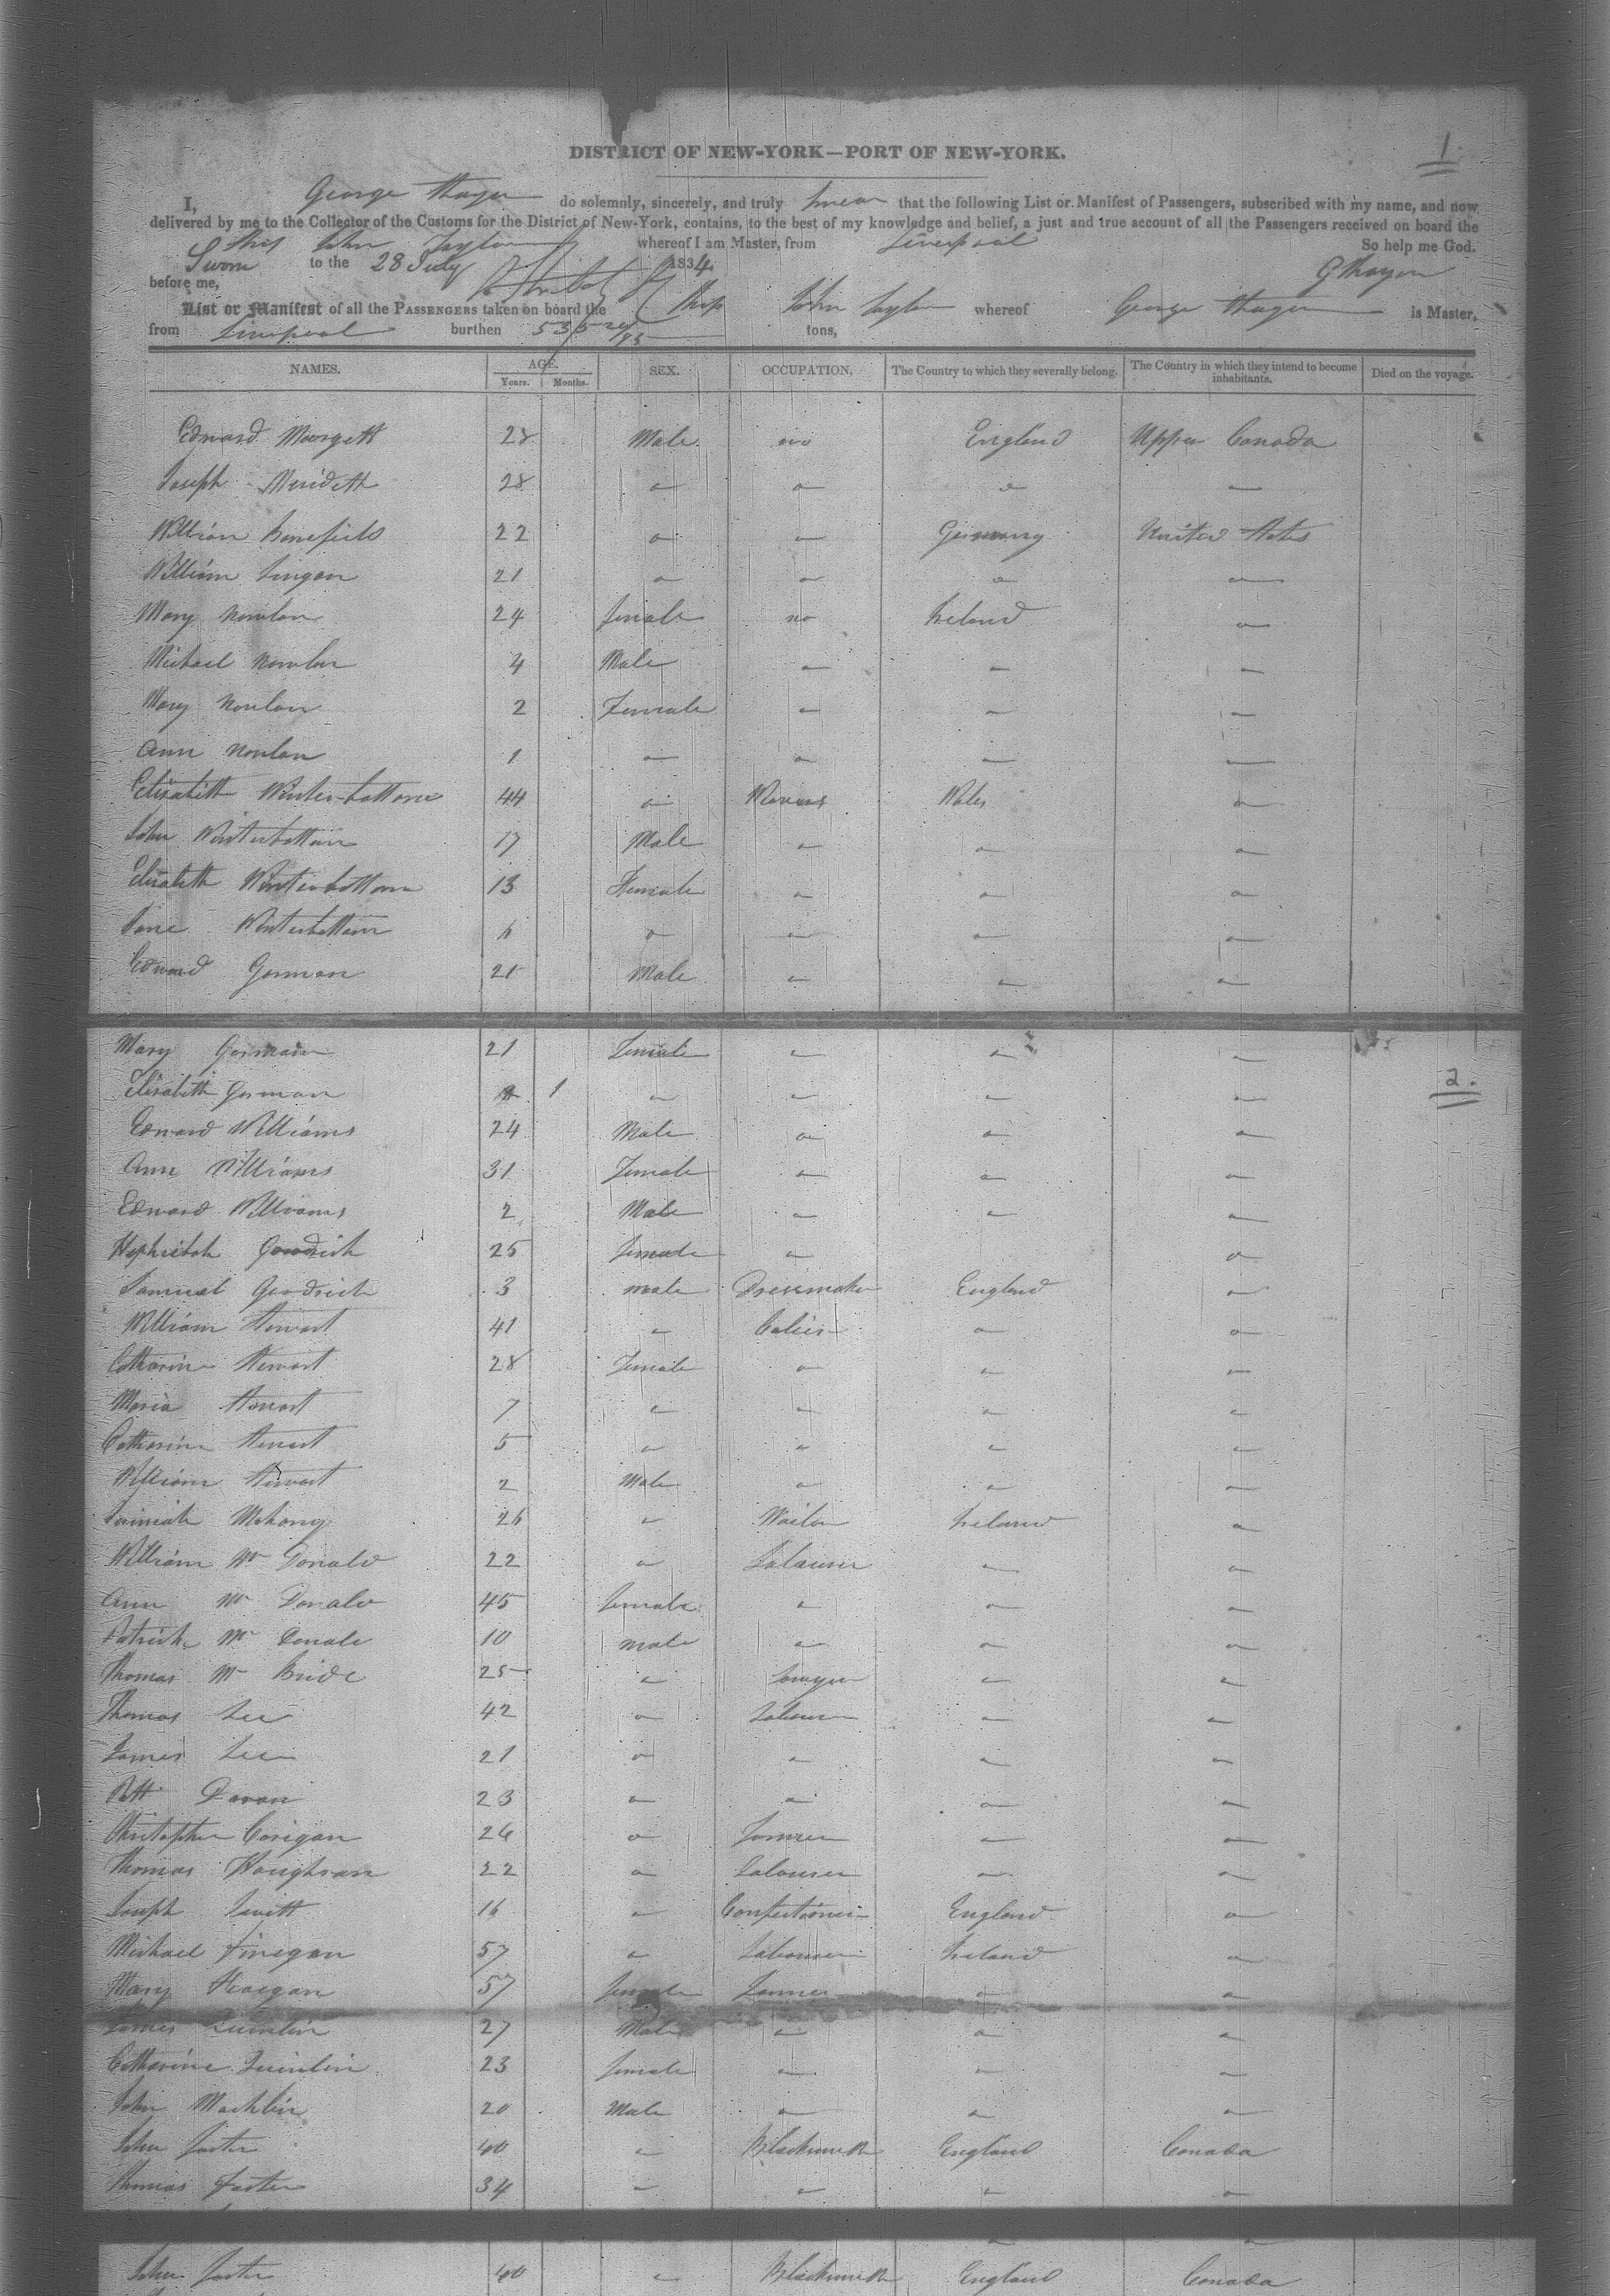 1
DISTRICT OF NEW-YORK—PORT OF NEW-YORK.
I, George Thayer do solemnly, sincerely, and truly swear that the following List or Manifest of Passengers, subscribed with my name, and now
delivered by me to the Collector of the Customs for the District of New-York, contains, to the best of my knowledge and belief, a just and true account of all the Passengers received on board the
Ship John Taylor whereof I am Master, from Liverpool So help me God.
Sworn to the 28 July 1834. G Thayer
before me,
List or Manifest of all the PASSENGERS taken on board the Ship John Taylor whereof George Thayer is Master,
from Liverpool burthen tons,
NAMES. AGE. Years. Months. SEX. OCCUPATION, The Country to which they severally belong. The Country in which they intend to become inhabitants. Died on the voyage.
Edward 28 Male no England Upper Canada
Joseph 28 " " " "
William 22 " " Germany United States
William 21 " " " "
Mary Nowlan 24 female no Ireland "
Michael Nowlan 4 Male " " "
Mary Nowlan 2 Female " " "
Ann Nowlan 1 " " " "
Elizabeth Winterbottom 44 " Wales "
John Winterbottom 17 Male " " "
Elizabeth Winterbottom 13 Female " " "
Jane Winterbottom " " " "
Edward Gorman 21 Male " " "
Mary Gorman 21 female " " "
Elizabeth Gorman 1 " " " "
2.
Edward Williams 24 Male " " "
Ann Williams 31 Female " " "
Edward Williams 2 Male " " "
Goodrich 25 female " "
Samuel Goodrich 3 male Dressmaker England "
William Stewart 41 " " "
Catharine Stewart 28 Female " " "
Maria Stewart 7 " " " "
Catharine Stewart 5 " " " "
William Stewart 2 Male " " "
Mahony 26 " Ireland "
William Mc Donald 22 " Labourer " "
Ann Mc Donald 45 female " " "
Patrick Mc Donald 10 male " " "
Thomas Mc Bride 25 " Sawyer " "
Thomas Lee 42 " Labourer " "
James Lee 21 " " " "
Patt 23 " " " "
Christopher Corigan 26 " Farmer " "
Thomas 22 " Labourer " "
Joseph 16 " Confectioner England "
Michael Finegan 57 " Labourer Ireland "
Mary Finegan 57 female Farmer " "
James Quinlin 27 Male " " "
Catharine Quinlin 23 female " " "
John Machlin 20 Male " " "
John Foster 40 " Blacksmith England Canada
Thomas Foster 34 " " " "
John Foster 40 " Blacksmith England Canada